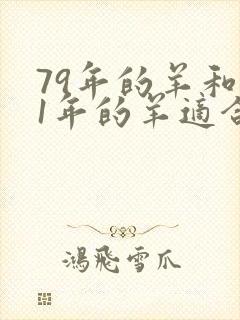 79年的羊和
1年的羊適合
鴻飛雪爪